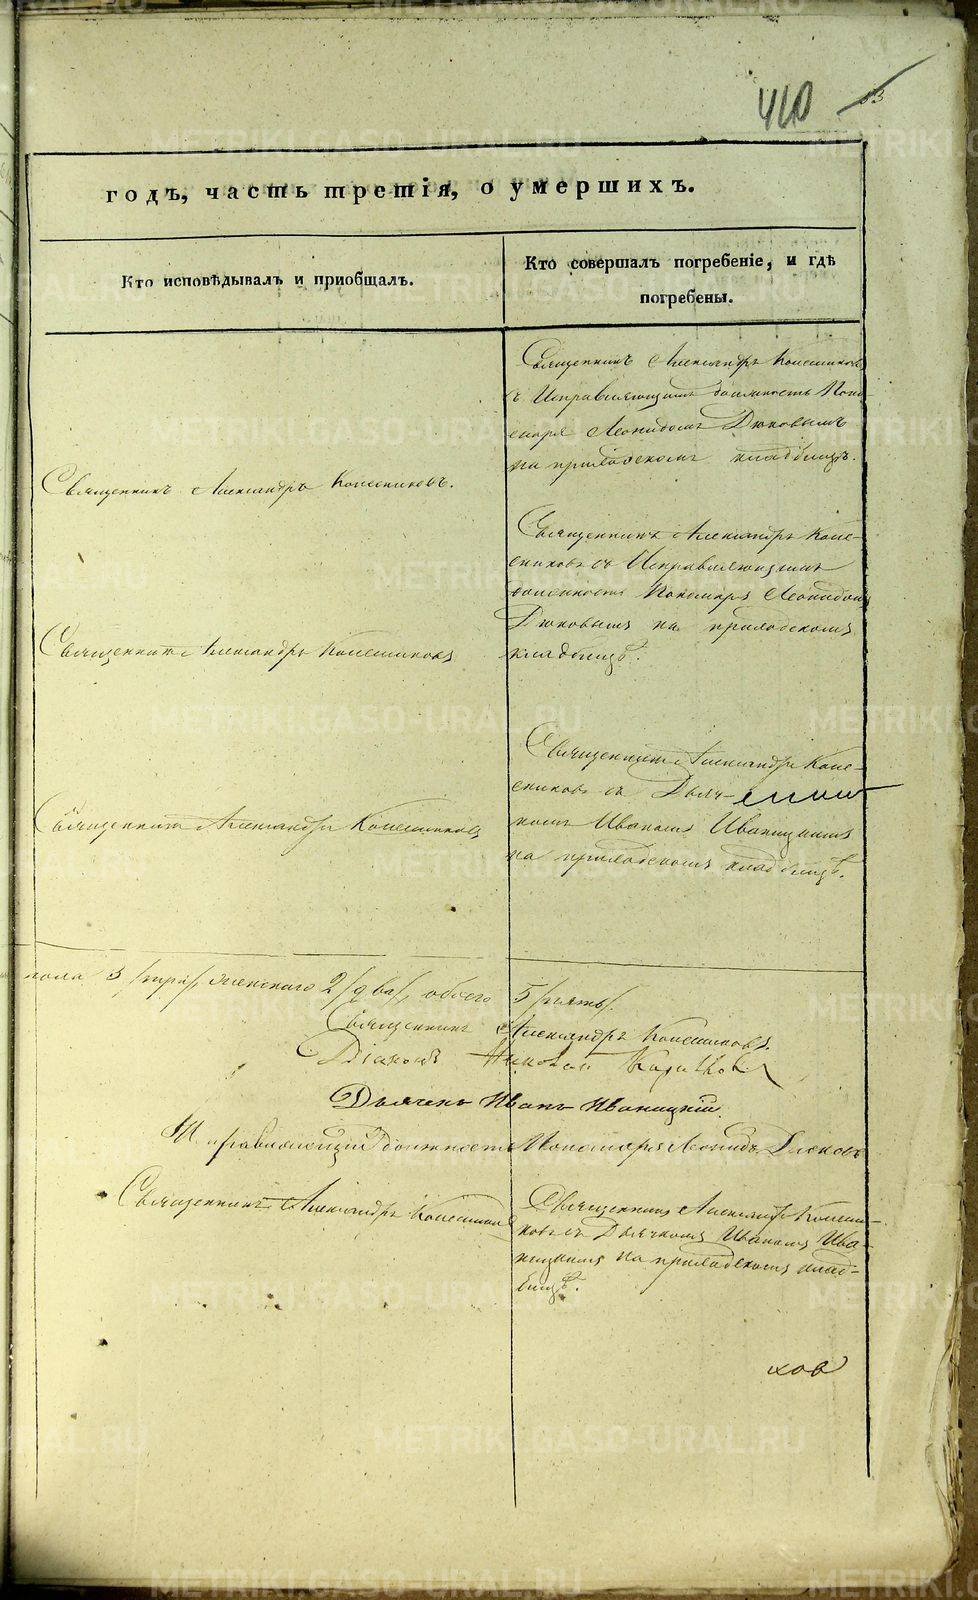 460 53
годъ, часть третія, о умершихъ.
Кто исповѣдывалъ и приобщалъ.
Кто совершалъ погребеніе, и гдѣ
погребены.
Священникъ Александръ Колесниковъ
съ Исправляющимъ должность Поно-
маря Леонидомъ Дюковымъ
на приходскомъ кладбищѣ.
Священникъ Александръ Колесниковъ.
Священникъ Александръ Коле-
сниковъ съ Исправляющимъ
должность Пономаря Леонидомъ
Дюковымъ на приходскомъ
кладбищѣ.
Священникъ Александръ Колесниковъ
Священникъ Александръ Коле-
сниковъ съ Дьяч-
комъ Иваномъ Иваницкимъ
на приходскомъ кладбищѣ.
Священникъ Александръ Колесниковъ
пола 3 /три/, женскаго 2 /два/, обоего 5 /пять/.
Священникъ Александръ Колесниковъ.
Діаконъ Николай
Дьячекъ Иванъ Иваницкій.
Исправляющій должность Пономаря Леонидъ Дюковъ
Священникъ Александръ Колесниковъ
Священникъ Александръ Колесни-
ковъ съ Дьячкомъ Иваномъ Ива-
ницкимъ на приходскомъ клад-
бищѣ.
ков
METRIKI.GASO-URAL.RU